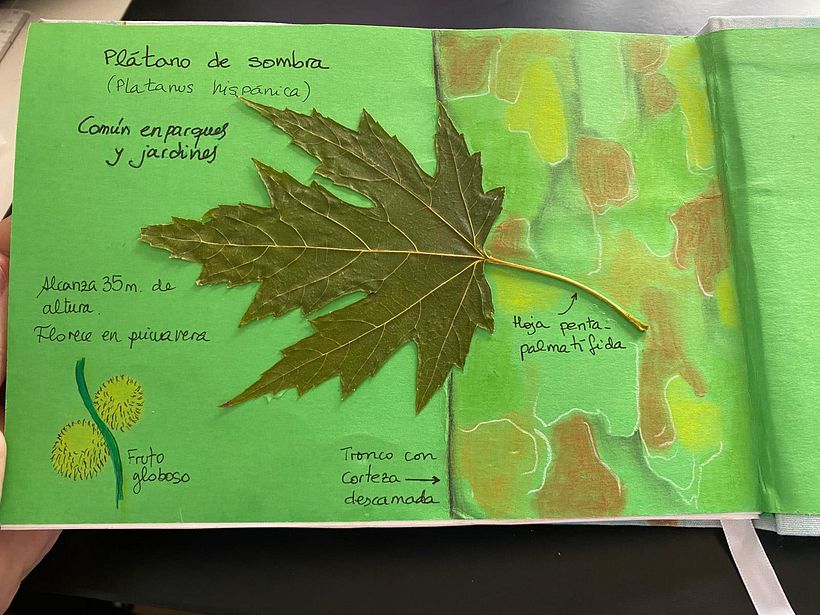 Plátano de sombra
(Platanus hispánica)
Común en parques
y jardines
Alcanza 35 m. de
altura.
Florece en primavera
Hoja penta-
palmatífida
Fruto
globoso
Tronco con
corteza
descamada